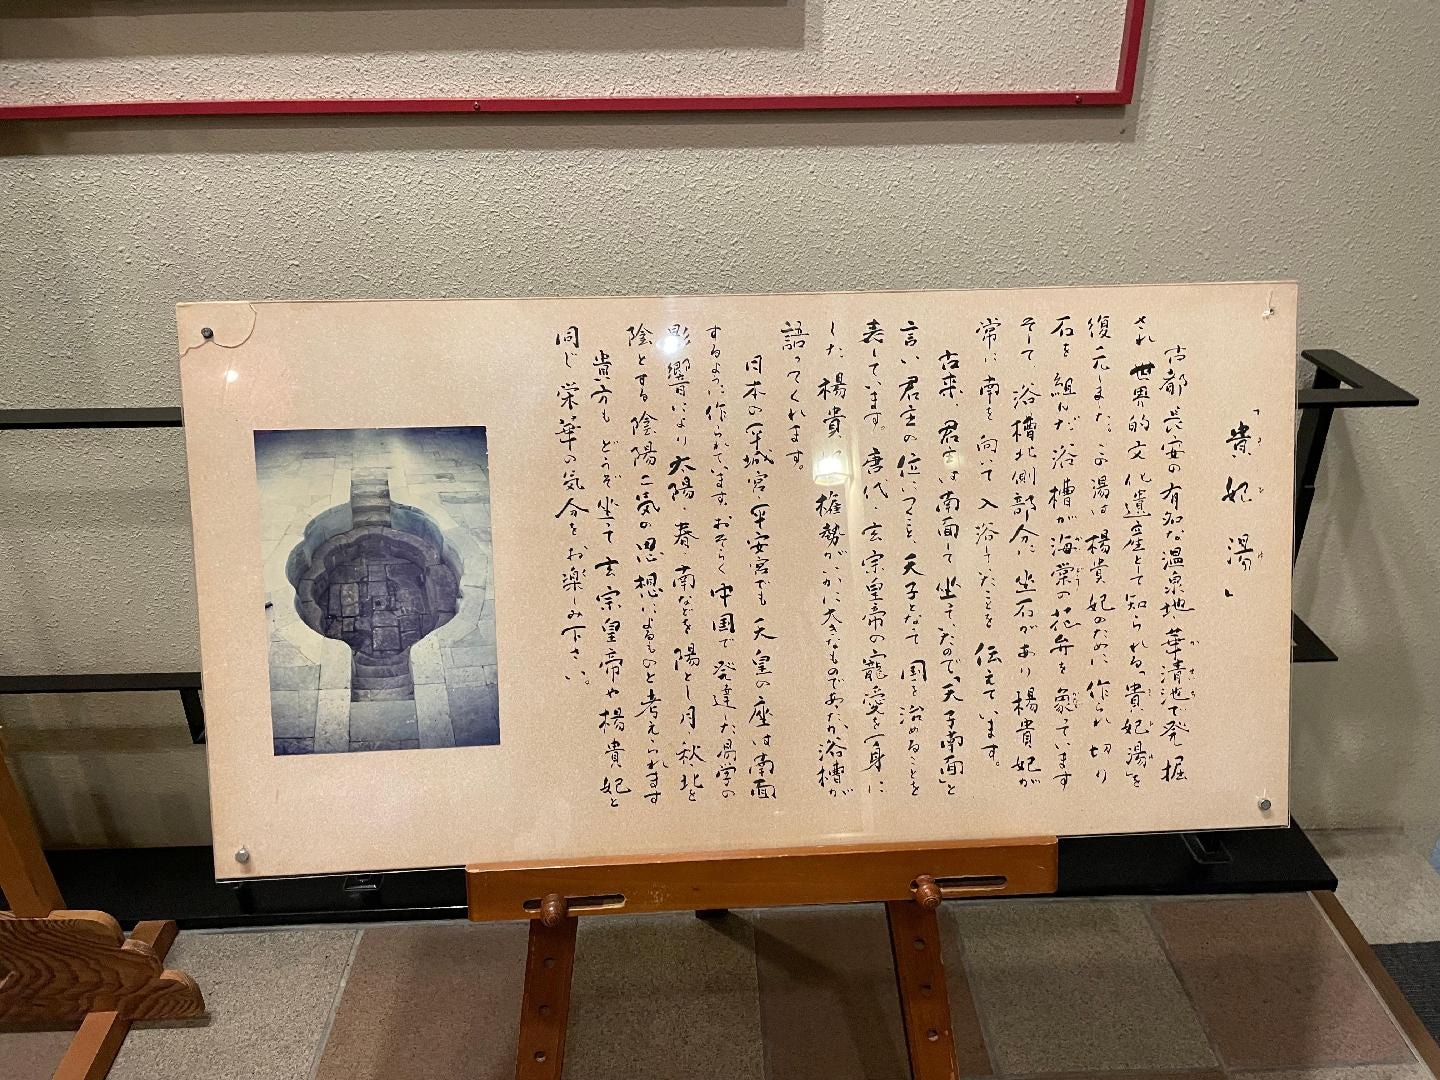 「貴妃湯」
古都長安の有名な温泉地、華清池で発掘
され世界的文化遺産として知られる「貴妃湯」を
復元しました。この湯は楊貴妃のために作られ切り
石を組んだ浴槽が海棠の花弁を象っています
そして、浴槽北側部分に坐石があり楊貴妃が
常に南を向いて入浴したことを伝えています。
古来、君主は南面して坐していたので「天子南面」と
言い君主の位につくこと、天子となって国を治めることを
表しています。唐代、玄宗皇帝の寵愛を一身に
した楊貴妃の権勢がいかに大きなものであったか浴槽が
語ってくれます。
日本の平城宮、平安宮でも天皇の座は南面
するように作られています。おそらく中国で発達した易学の
影響により太陽・春・南などを陽とし月・秋・北を
陰とする陰陽二気の思想によるものと考えられます
貴方もどうぞ坐って玄宗皇帝や楊貴妃と
同じ栄華の気分をお楽しみ下さい。